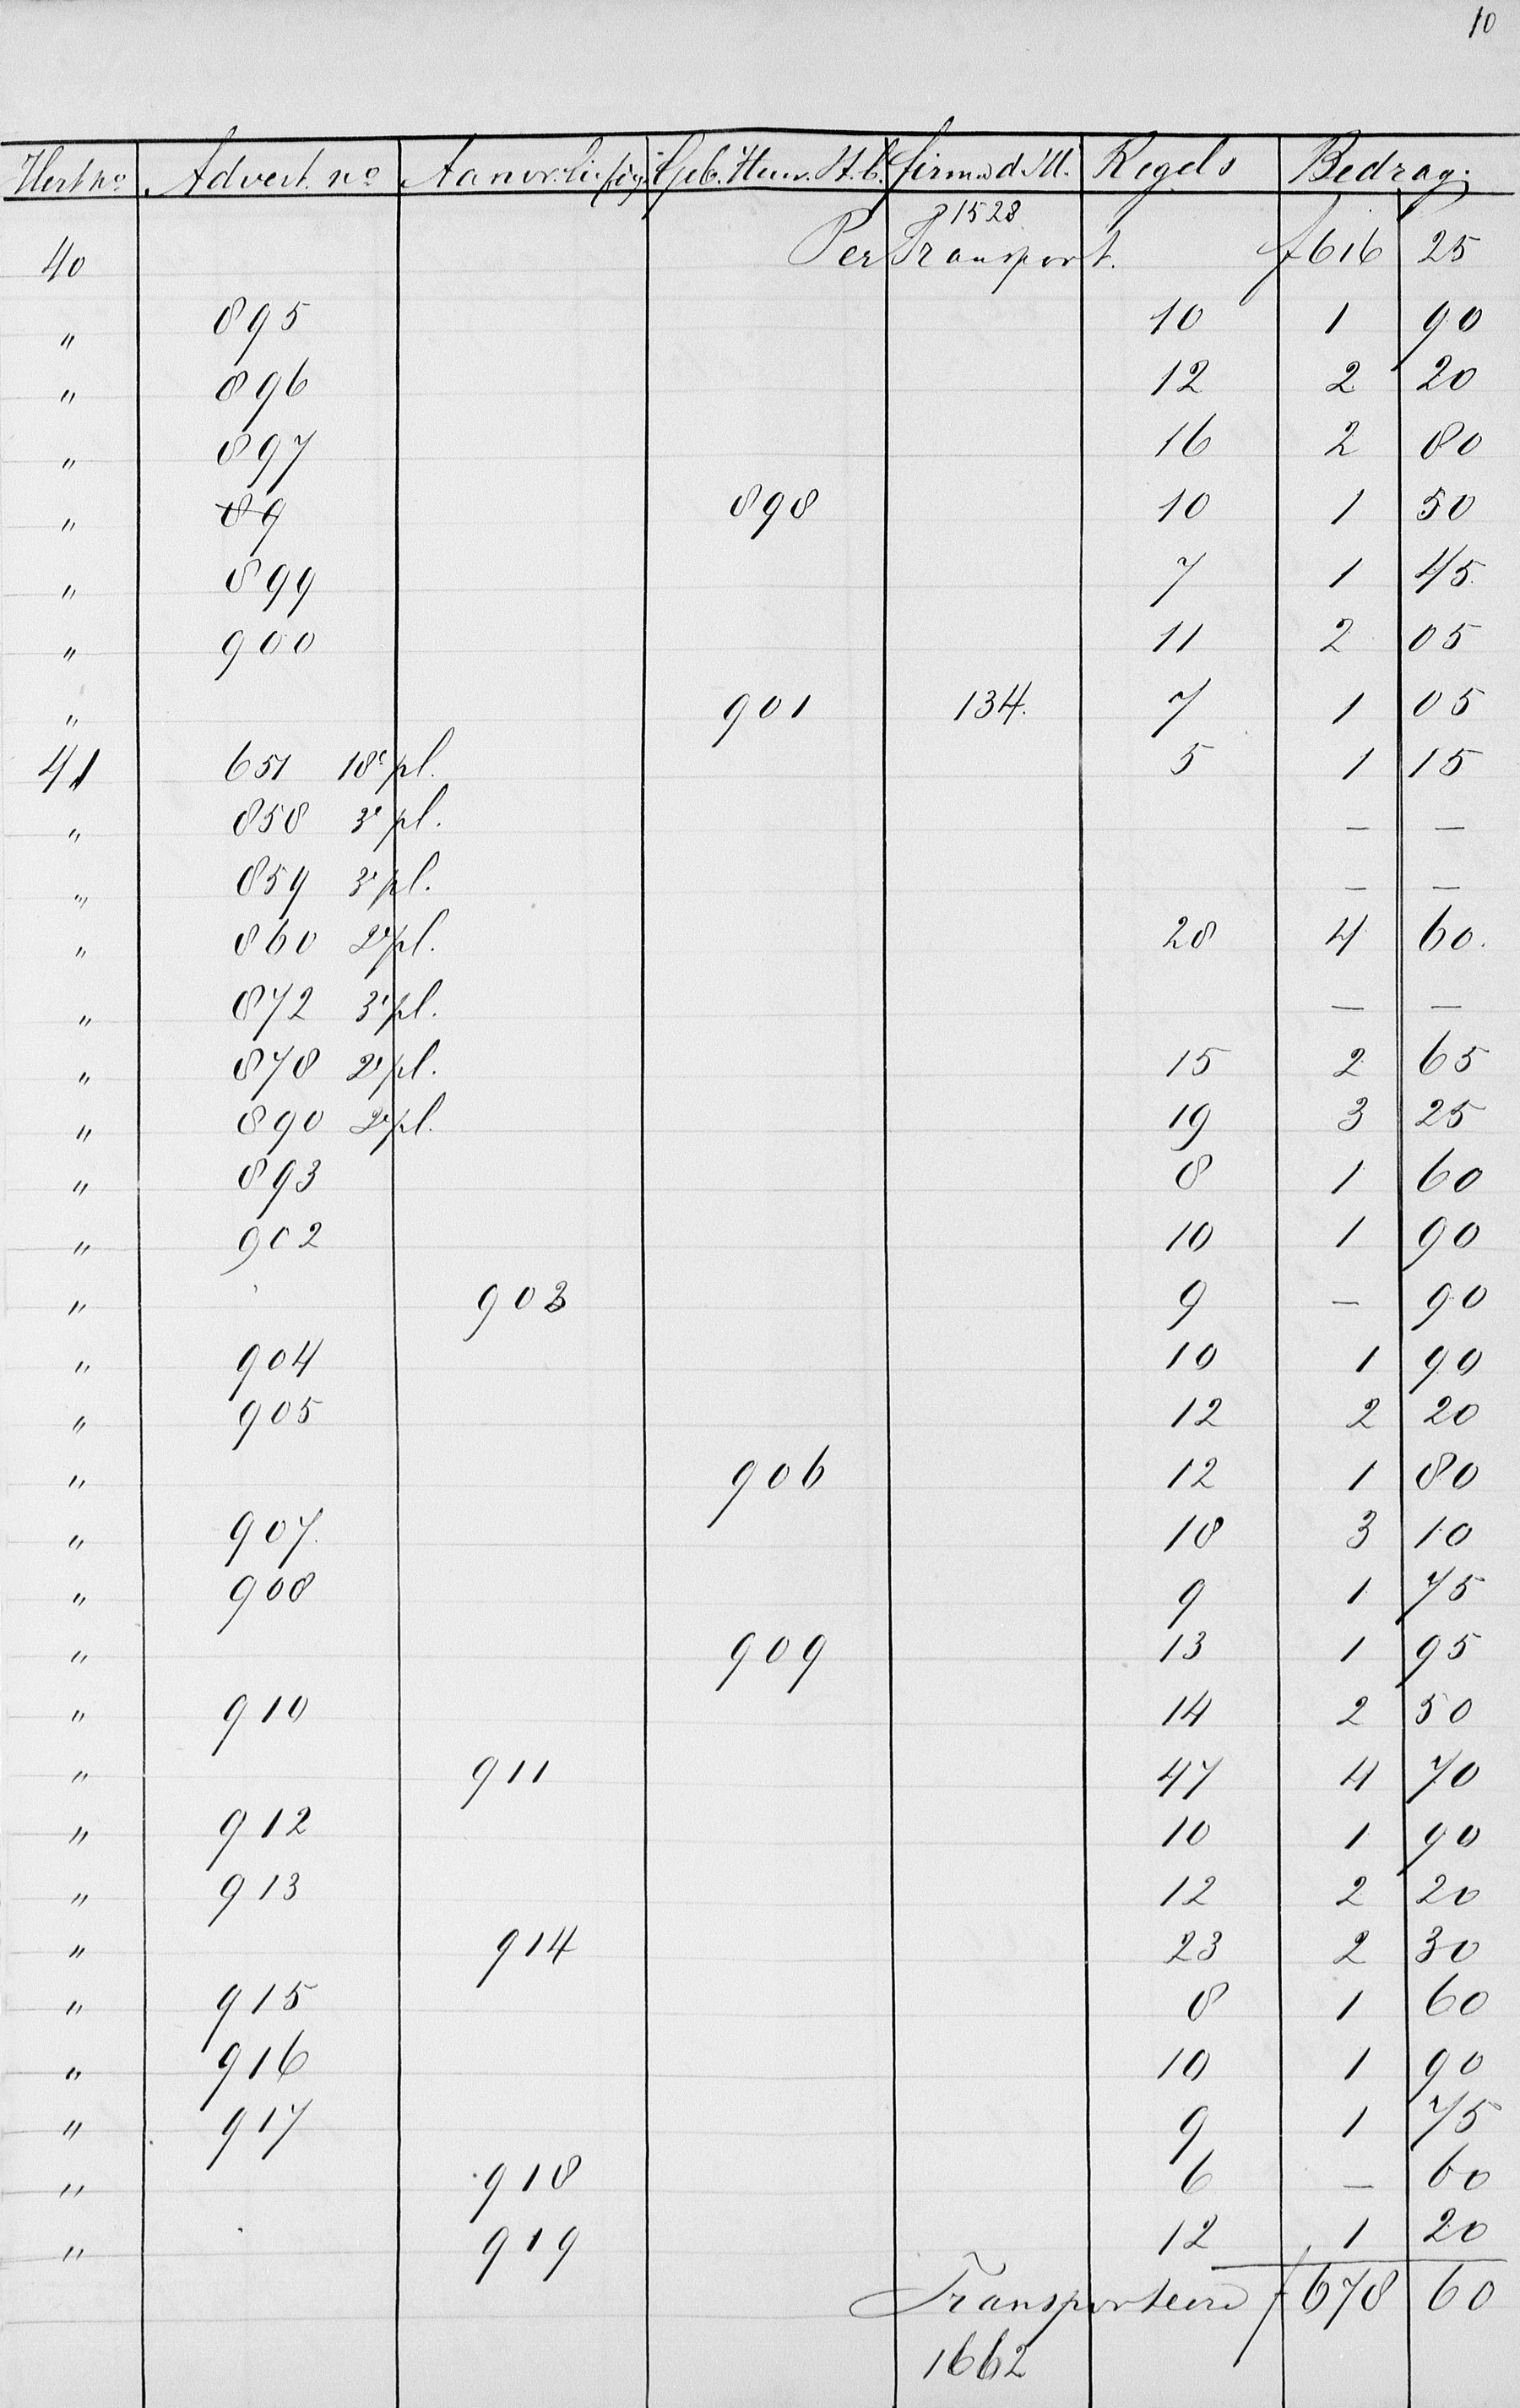 10
Advert. no Regels Bedrag.
1528
40 Per Transport. f 616 25
" 895 10 1 90
" 896 12 2 20
" 897 16 2 80
" 89 898 10 1 50
" 899 7 1 45.
" 900 11 2 05
" 901 134. 7 1 05
41 651 18e pl. 5 1 15
" 858 3e pl. — —
" 859 3e pl. — —
" 860 2e pl. 28 4 60.
" 872 3e pl. — —
" 878 2e pl. 15 2 65
" 890 2e pl. 19 3 25
" 893 8 1 60
" 902 10 1 90
" 903 9 — 90
" 904 10 1 90
" 905 12 2 20
" 906 12 1 80
" 907. 18 3 10
" 908 9 1 75
" 909 13 1 95
" 910 14 2 50
" 911 47 4 70
" 912 10 1 90
" 913 12 2 20
" 914 23 2 30
" 915 8 1 60
" 916 10 1 90
" 917 9 1 75
" 918 6 — 60
" 919 12 1 20
Transporteere f 678 60
1662